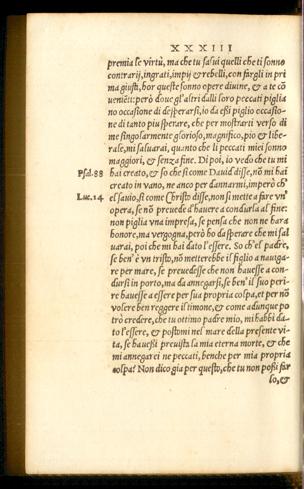 XXXIII
premia le virtù, ma che tu salui quelli che ti sonno
contrarij, ingrati, impij & rebelli, con fargli in pri
ma giusti, hor queste sonno opere diuine, & a te cõ
uenieti: però doue gl'altri dalli loro peccati piglia
no occasione di desperarsi, io da essi piglio occasio-
ne di tanto piu sperare, che per mostrarti verso di
me singolarmente glorioso, magnifico, pio & libe-
rale, mi saluarai, quanto che li peccati miei sonno
maggiori, & senza fine. Di poi, io vedo che tu mi
Psal.88 hai creato, & so che si come Dauid disse, nõ mi hai
creato in vano, ne anco per dannarmi, imperò ch'
Luc.14 el sauio, si come Christo disse, non si mette a fare vn'
opera, se nõ preuede d'hauere a condurla al fine:
non piglia vna impresa, se pensa che non ne hara
honore, ma vergogna, però ho da sperare che mi sal
uarai, poi che mi hai dato l'essere. So ch'el padre,
se ben' è vn tristo, nõ metterebbe il figlio a nauiga-
re per mare, se preuedesse che non hauesse a con-
dursi in porto, ma da annegarsi, se ben' il suo peri-
re hauesse a essere per sua propria colpa, et per nõ
volere ben reggere il timone, & come adunque po
trò credere, che tu ottimo padre mio, mi habbi da-
to l'essere, & postomi nel mare della presente vi-
ta, se hauessi preuista la mia eterna morte, & che
mi annegarei ne peccati, benche per mia propria
colpa? Non dico gia per questo, che tu non possi far
lo, &